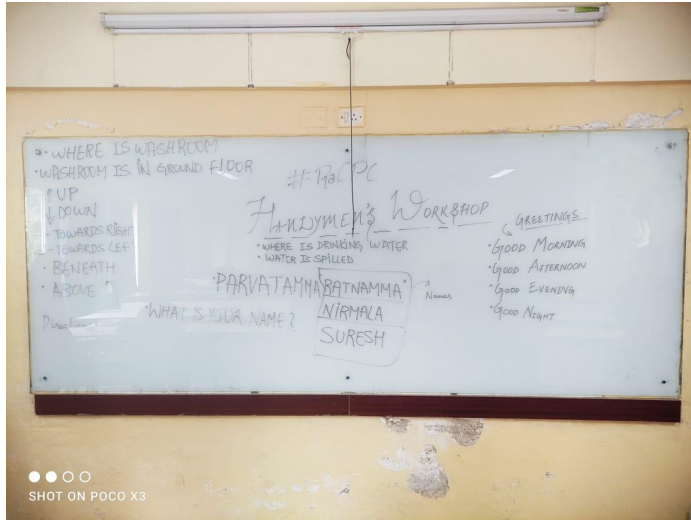 WHERE IS WASHROOM
• WASHROOM IS IN GROUND FLOOR
↑ UP
↓ DOWN
- TOWARDS RIGHT
- TOWARDS LEFT
• BENEATH
• ABOVE
HANDYMEN'S WORKSHOP
• WHERE IS DRINKING WATER
• WATER IS SPILLED
• PARVATAMMA RATNAMMA
Names
NIRMALA
SURESH
• WHAT IS YOUR NAME?
GREETINGS
• GOOD MORNING
• GOOD AFTERNOON
• GOOD EVENING
• GOOD NIGHT
SHOT ON POCO X3